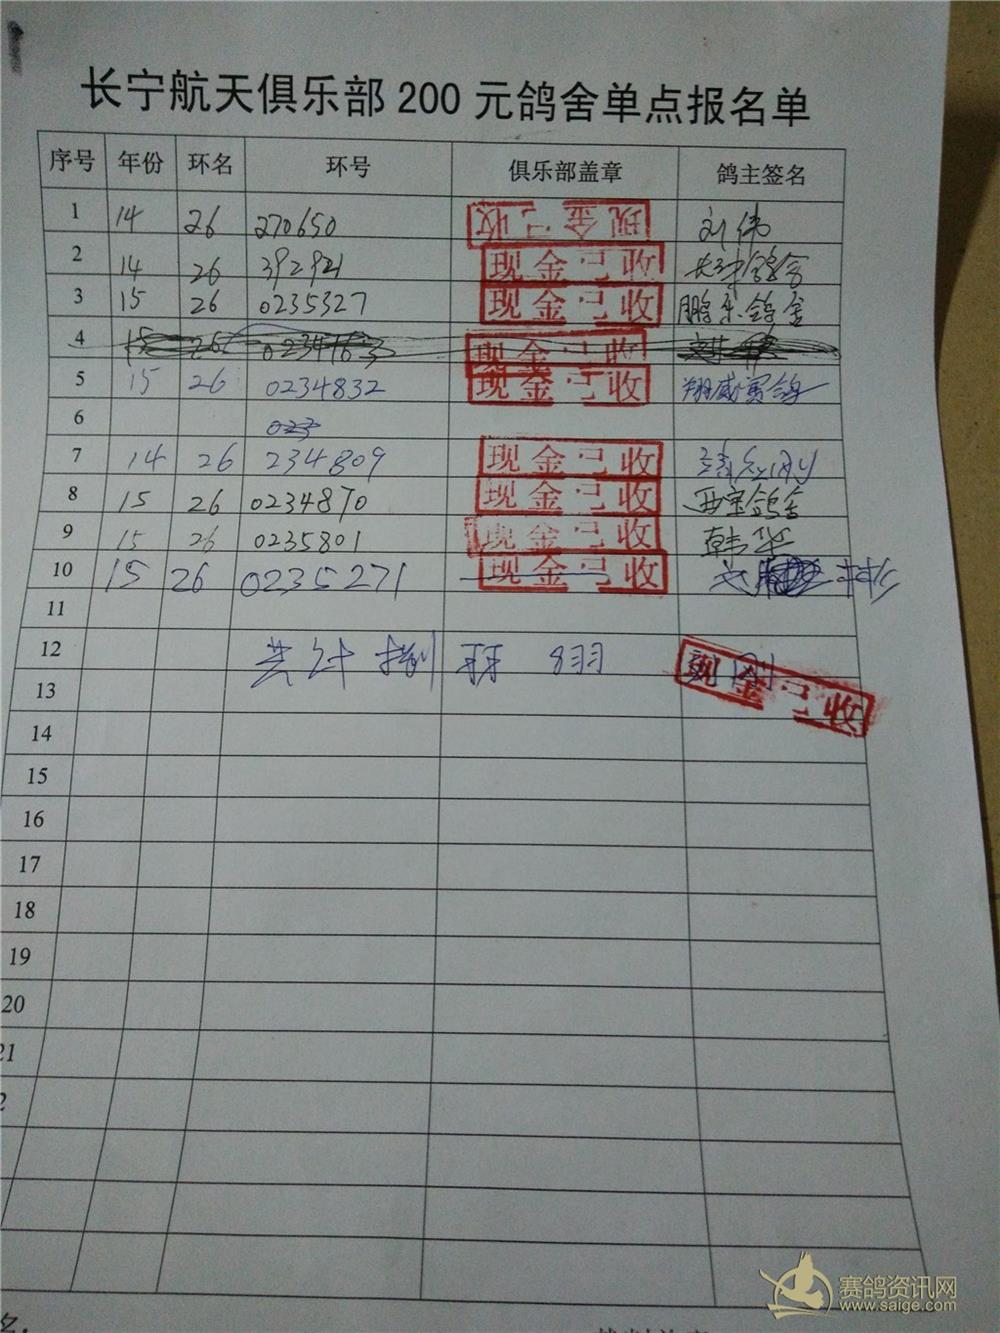 长宁航天俱乐部 200 元鸽舍单点报名单
序号 年份 环名 环号 俱乐部盖章 鸽主签名
1 14 26 270650 现金已收 刘伟
2 14 26 392921 现金已收 鸽舍
3 15 26 0235327 现金已收 鹏乐鸽舍
4 15 26 0234163 现金已收
5 15 26 0234832 现金已收 翔威赛鸽
6 023
7 14 26 234809 现金已收
8 15 26 0234870 现金已收 西宝鸽舍
9 15 26 0235801 现金已收 韩华
10 15 26 0235271 现金已收
11
12 共计 8羽
现金已收
13
14
15
16
17
18
19
20
21
2
名:
赛鸽资讯网
www.saige.com